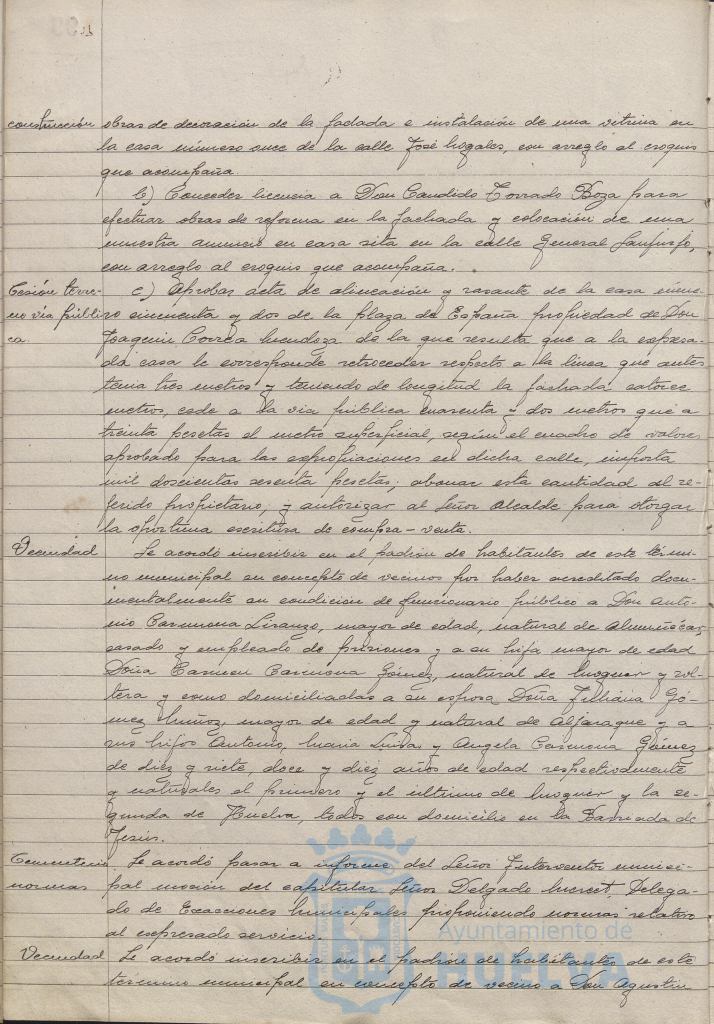 construcción obras de decoración de la fachada e instalación de una vitrina en
la casa número once de la calle José Nogales, con arreglo al croquis
que acompaña
b) Conceder licencia a Don Candido Torrado Boza para
efectuar obras de reforma en la fachada y colocación de una
muestra anuncio en casa sita en la calle General Sanjurjo,
con arreglo al croquis que acompaña.
Cesión terre- c) Aprobar acta de alineación y rasante de la casa núme-
no via públi- ro cincuenta y dos de la plaza de España propiedad de Don
ca. Joaquin Correa Mendoza de la que resulta que a la expresa-
da casa le corresponde retroceder respecto a la linea que antes
tenia tres metros y teniendo de longitud la fachada catorce
metros, cede a la via pública cuarenta y dos metros que a
treinta pesetas el metro superficial, según el cuadro de valores
aprobado para las expropiaciones en dicha calle, importa
mil doscientas sesenta pesetas; abonar esta cantidad al re-
ferido propietario, y autorizar al Señor Alcalde para otorgar
la oportuna escritura de compra-venta.
Vecindad Se acordó inscribir en el padrón de habitantes de este térmi-
no municipal en concepto de vecinos por haber acreditado docu-
mentalmente su condición de funcionario público a Don Anto-
nio Carmona Liranzo, mayor de edad, natural de Almuñécar,
casado y empleado de prisiones y a su hija mayor de edad
Doña Carmen Carmona Gómez, natural de Moguer y sol-
tera y como domiciliadas a su esposa Doña Gó-
mez Muñoz, mayor de edad y natural de Aljaraque y a
sus hijos Antonio, Maria Luisa y Angela Carmona Gómez
de diez y siete, doce y diez años de edad respectivamente
y naturales el primero y el último de Moguer y la se-
gunda de Huelva, todos con domicilio en la Barriada de
Jesús.
Cementerio Se acordó pasar a informe del Señor Interventor munici-
normas pal moción del capitular Señor Delgado Delega-
do de Exacciones Municipales proponiendo normas relativas
al expresado servicio.
Vecindad Se acordó inscribir en el padrón de habitantes de este
término municipal en concepto de vecino a Don Agustin
Ayuntamiento de
HUELVA